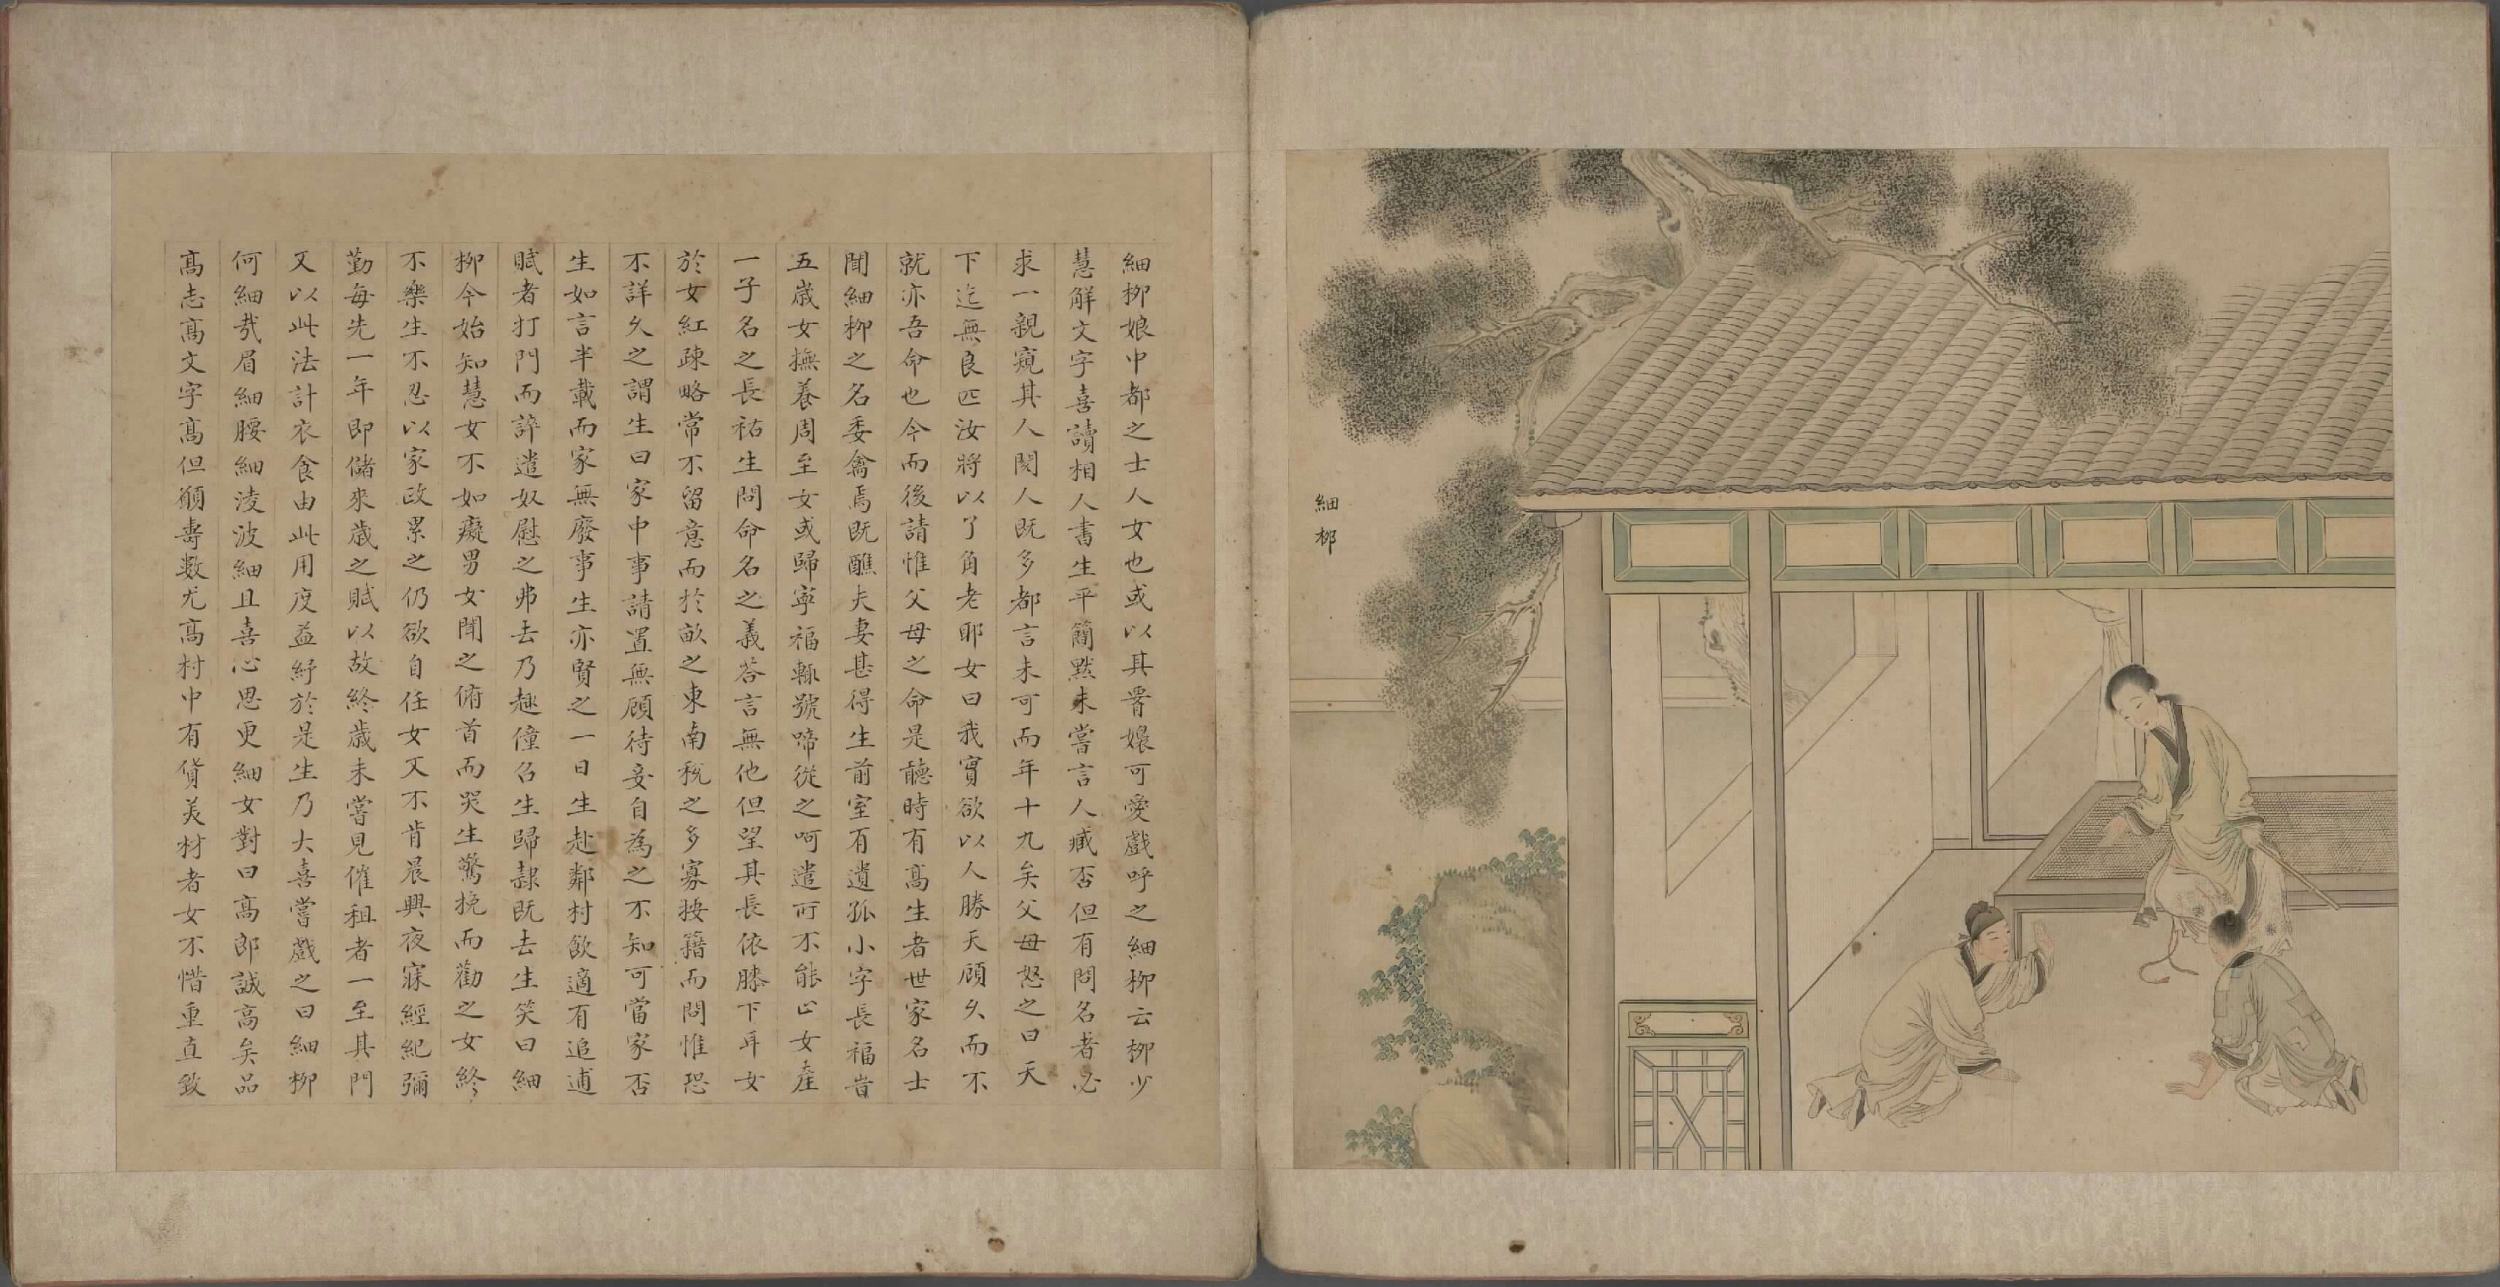 細柳
細柳娘中都之士人女也或以其嬛可愛戲呼之細柳云柳少
慧解文字喜讀相人書生平簡默未嘗言人臧否但有問名者必
求一親窺其人閱人既多都言未可而年十九矣父母怒之曰天
下迄無良匹汝將以了角老耶女曰我實欲以人勝天顧久而不
就亦吾命也今而後請惟父母之命是聽時有高生者世家名士
聞細柳之名委禽焉既醮夫妻甚得生前室有遺孤小字長福旹
五歲女撫養周至女或歸寧福輒號啼從之呵遣所不能止女產
一子名之長祐生問命名之義答言無他但望其長依膝下耳女
於女紅疎略常不留意而於畝之東南稅之多寡按籍而問惟恐
不詳久之謂生曰家中事請置無顧待妾自為之不知可當家否
生如言半載而家無廢事生亦賢之一日生赴鄰村飲適有追逋
賦者打門而誶遣奴慰之弗去乃趣僮召生歸隸既去生笑曰細
柳今始知慧女不如癡男女聞之俯首而哭生驚挽而勸之女終
不樂生不忍以家政累之仍欲自任女又不肯晨興夜寐經紀彌
勤每先一年即儲來歲之賦以故終歲未嘗見催租者一至其門
又以此法計衣食由此用度益紓於是生乃大喜嘗戲之曰細柳
何細哉眉細腰細淩波細且喜心思更細女對曰高郎誠高矣品
高志高文字高但願壽數尤高村中有貨美材者女不惜重直致